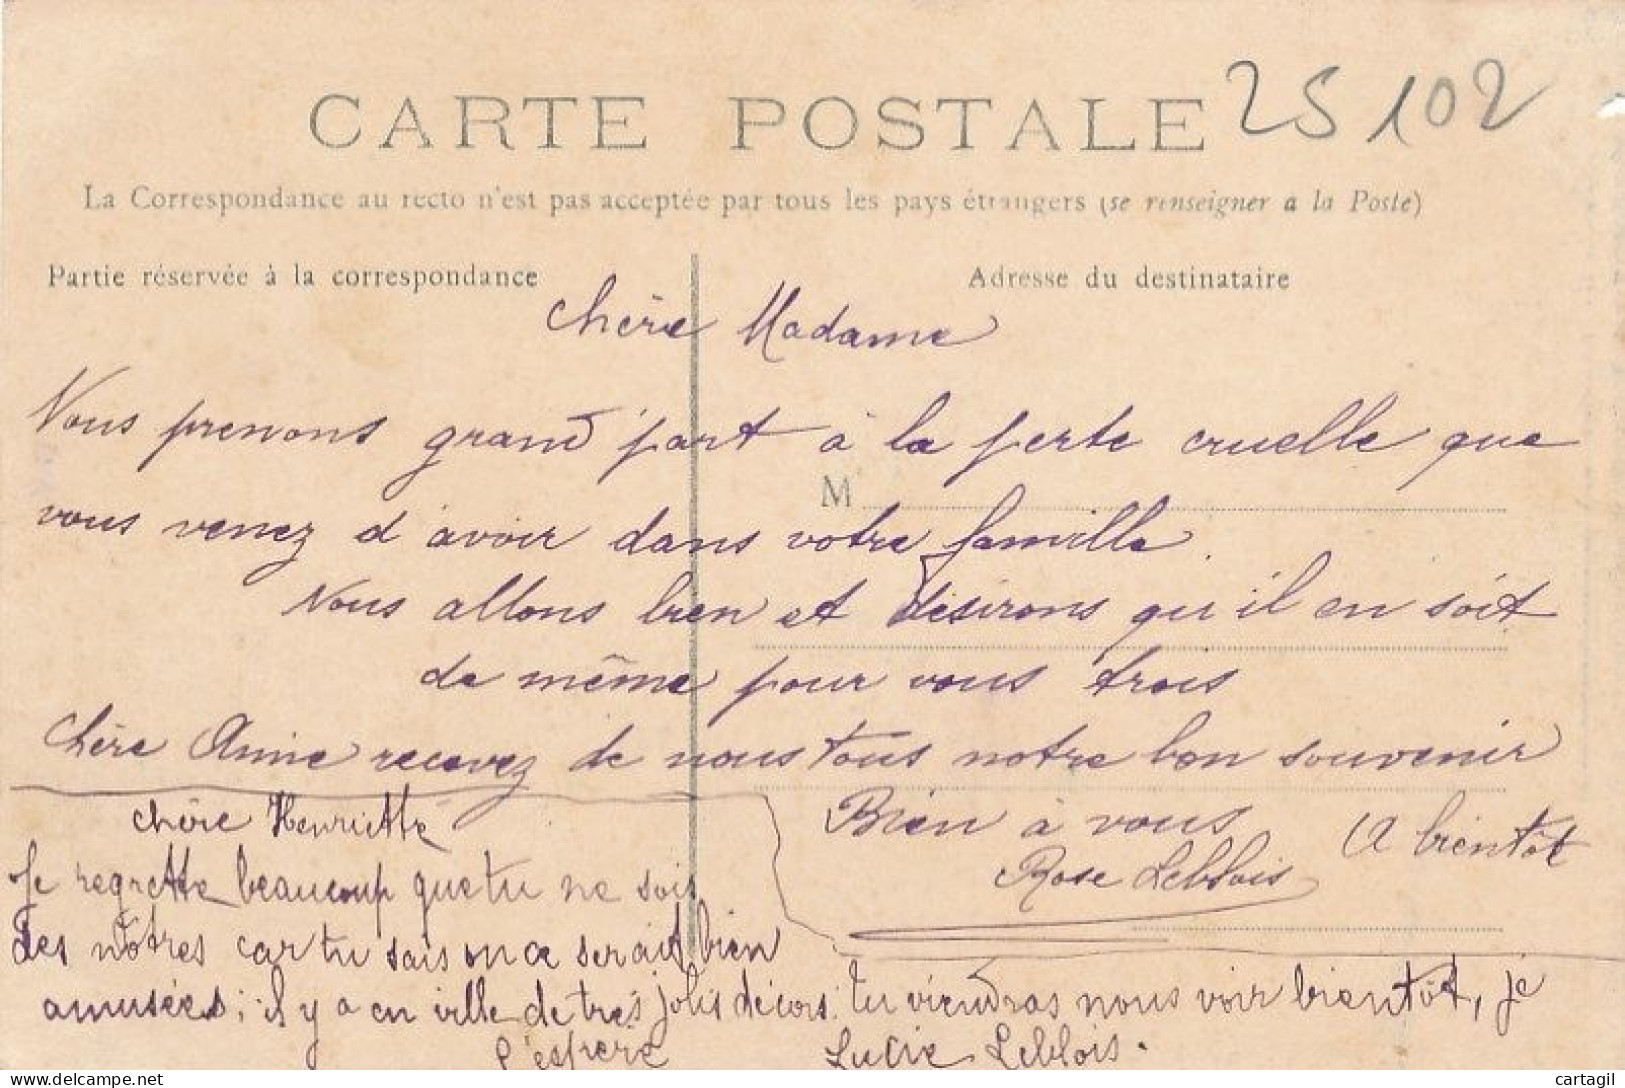 25 102
CARTE POSTALE
La Correspondance au recto n'est pas acceptée par tous les pays étrangers (se renseigner a la Poste)
Partie réservée à la correspondance
Adresse du destinataire
Chère Madame
Nous prenons grand part à la perte cruelle que
M
vous venez d'avoir dans votre famille.
Nous allons bien et désirons qu'il en soit
de même pour vous trois
Chère Annie recevez de nous tous notre bon souvenir
Bien à vous
A bientôt
Rose Leblois
Chère Henriette
Je regrette beaucoup que tu ne sois
des nôtres car tu sais on ce serait bien
amusées; il y a en ville de très jolis décors. tu viendras nous voir bientôt, je
l'espère Lucie Leblois.
cartagil